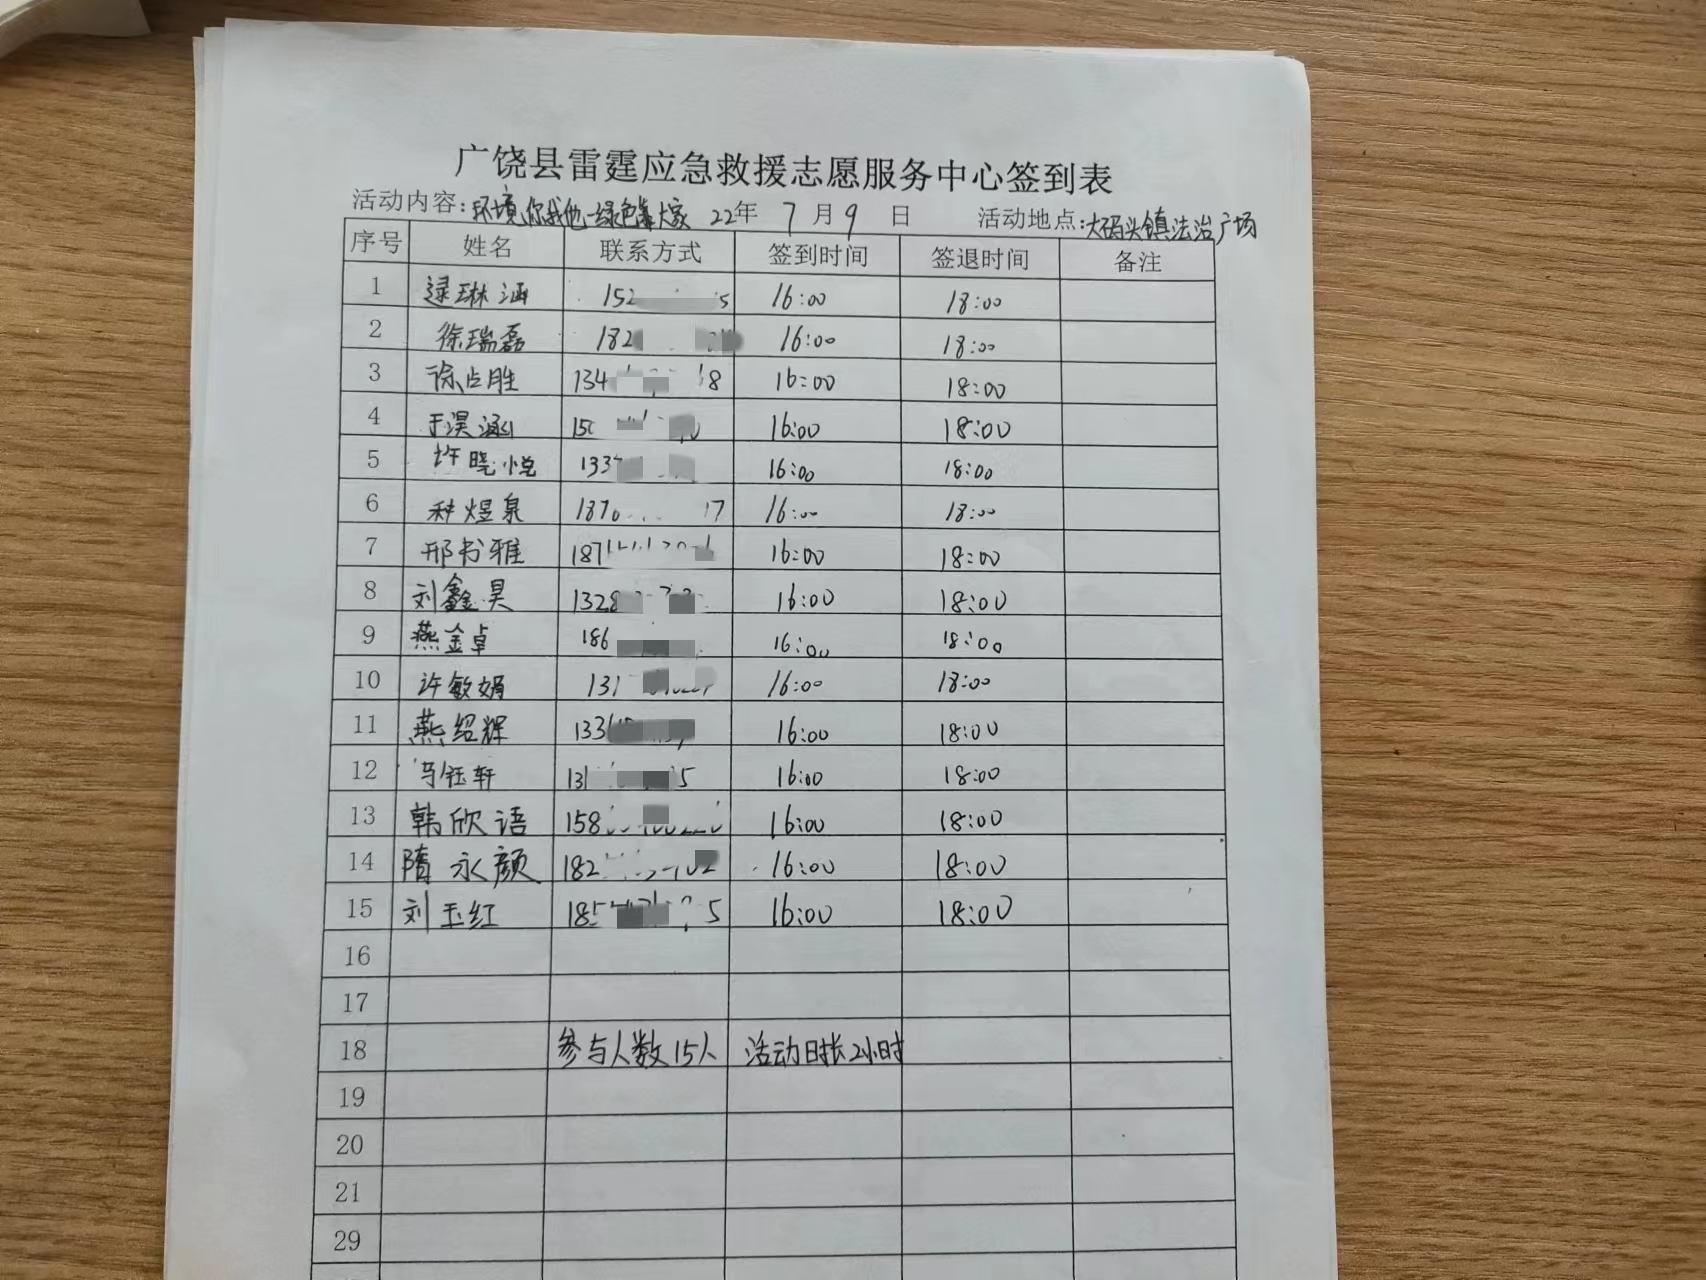 广饶县雷霆应急救援志愿服务中心签到表
活动内容:环境你我他一绿色靠大家 22年 7月9日 活动地点:大码头镇法治广场
序号 姓名 联系方式 签到时间 签退时间 备注
1 逯琳涵 152 5 16:00 18:00
2 徐瑞磊 182 16:00 18:00
3 徐占胜 134 8 16:00 18:00
4 于淏涵 150 16:00 18:00
5 许晓悦 133 16:00 18:00
6 种煜泉 1870 17 16:00 18:00
7 邢书雅 187 16:00 18:00
8 刘鑫昊 1328 16:00 18:00
9 燕金卓 186 16:00 18:00
10 许敏娟 131 16:00 18:00
11 燕绍辉 133 16:00 18:00
12 马钰轩 131 5 16:00 18:00
13 韩欣语 158 16:00 18:00
14 隋永颜 182 02 16:00 18:00
15 刘玉红 185 5 16:00 18:00
16
17
18 参与人数15人 活动时长2小时
19
20
21
29